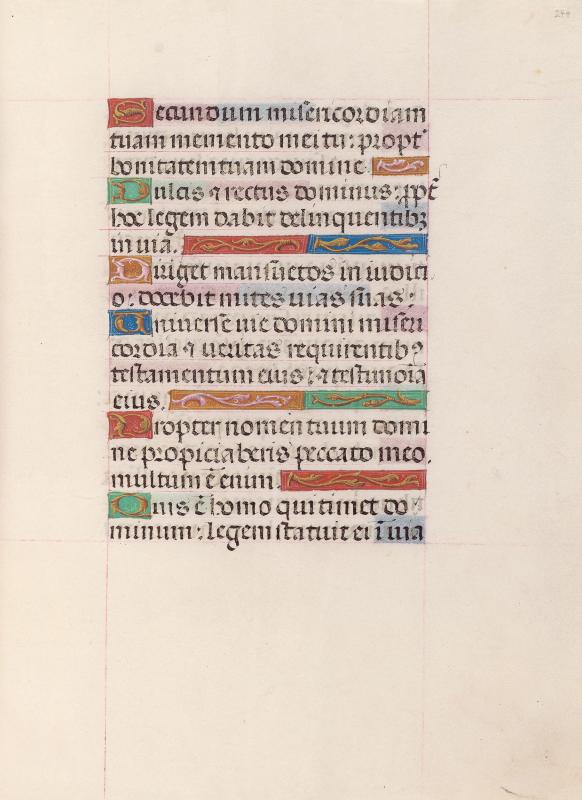 244
Secundum misericordiam
tuam memento mei tu: propt̾
bonitatem tuam domine.
Dulcis ⁊ rectus dominus: ꝓpt̾
hoc legem dabit delinquentibꝫ
in via.
Diriget mansuetos in iudici
o: docebit mites vias suas:
Universe vie domini miseri
cordia ⁊ veritas requirentibꝰ
testamentum eius: ⁊ testimoīa
eius.
Propter nomen tuum domi
ne propiciaberis peccato meo.
multum ē enim.
Quis ē homo qui timet do
minum: legem statuit ei ī via